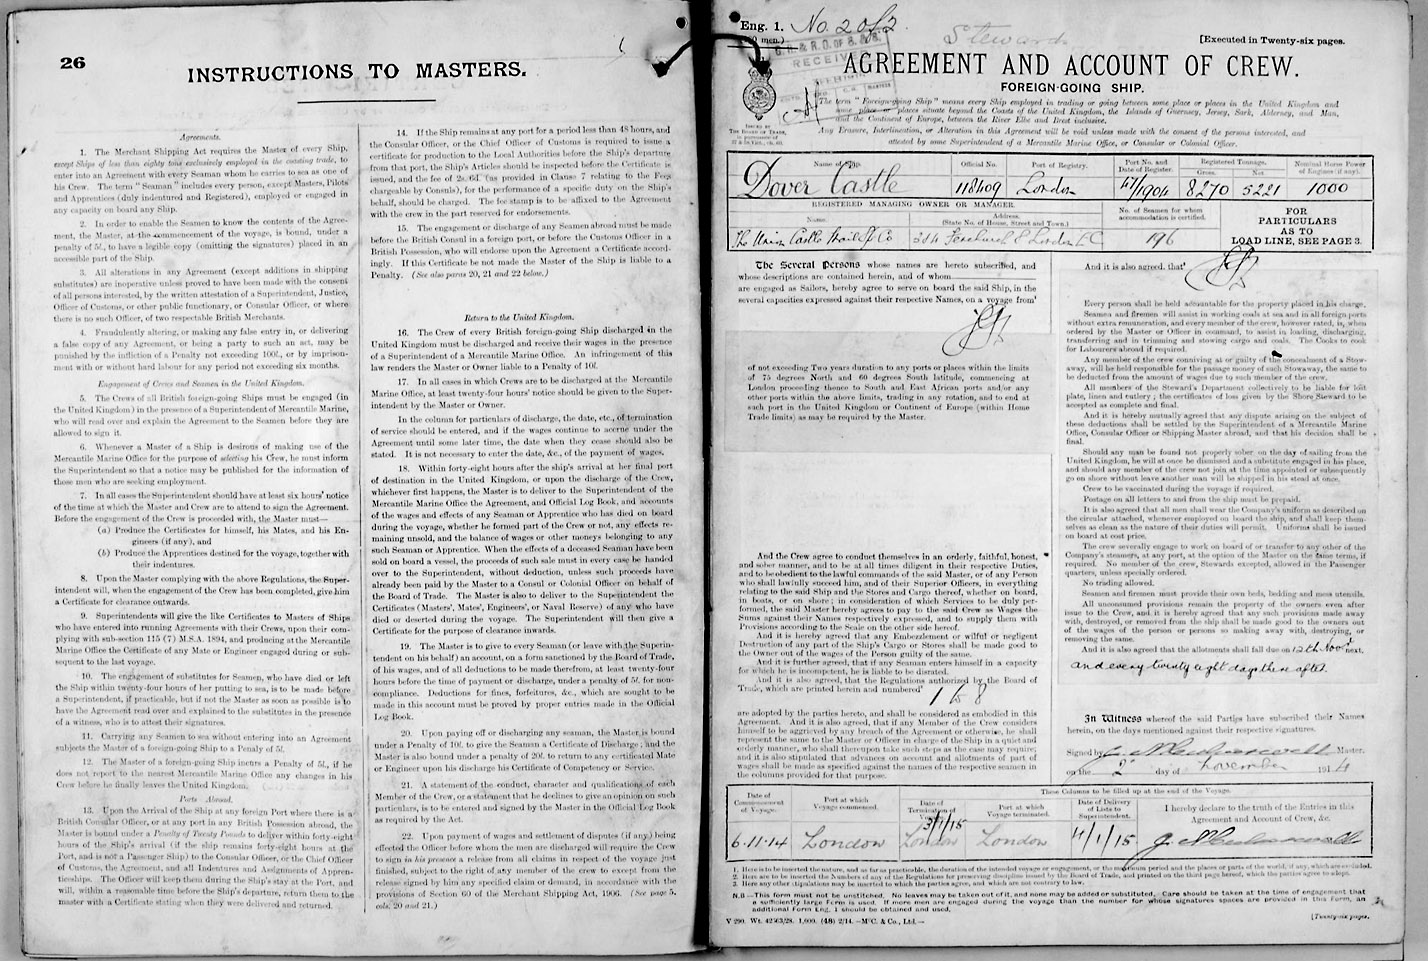 26
INSTRUCTIONS TO MASTERS.
Agreements.
1. The Merchant Shipping Act requires the Master of every Ship,
except Ships of less than eighty tons exclusively employed in the coasting trade, to
enter into an Agreement with every Seaman whom he carries to sea as one of
his Crew. The term "Seaman" includes every person, except Masters, Pilots
and Apprentices (duly indentured and Registered), employed or engaged in
any capacity on board any Ship.
2. In order to enable the Seamen to know the contents of the Agree-
ment, the Master, at the commencement of the voyage, is bound, under a
penalty of 5l., to have a legible copy (omitting the signatures) placed in an
accessible part of the Ship.
3. All alterations in any Agreement (except additions in shipping
substitutes) are inoperative unless proved to have been made with the consent
of all persons interested, by the written attestation of a Superintendent, Justice,
Officer of Customs, or other public functionary, or Consular Officer, or where
there is no such Officer, of two respectable British Merchants.
4. Fraudulently altering, or making any false entry in, or delivering
a false copy of any Agreement, or being a party to such an act, may be
punished by the infliction of a Penalty not exceeding 100l., or by imprison-
ment with or without hard labour for any period not exceeding six months.
Engagement of Crews and Seamen in the United Kingdom.
5. The Crews of all British foreign-going Ships must be engaged (in
the United Kingdom) in the presence of a Superintendent of Mercantile Marine,
who will read over and explain the Agreement to the Seamen before they are
allowed to sign it.
6. Whenever a Master of a Ship is desirous of making use of the
Mercantile Marine Office for the purpose of selecting his Crew, he must inform
the Superintendent so that a notice may be published for the information of
those men who are seeking employment.
7. In all cases the Superintendent should have at least six hours' notice
of the time at which the Master and Crew are to attend to sign the Agreement.
Before the engagement of the Crew is proceeded with, the Master must—
(a) Produce the Certificates for himself, his Mates, and his En-
gineers (if any), and
(b) Produce the Apprentices destined for the voyage, together with
their indentures.
8. Upon the Master complying with the above Regulations, the Super-
intendent will, when the engagement of the Crew has been completed, give him
a Certificate for clearance outwards.
9. Superintendents will give the like Certificates to Masters of Ships
who have entered into running Agreements with their Crews, upon their com-
plying with sub-section 115 (7) M.S.A. 1894, and producing at the Mercantile
Marine Office the Certificate of any Mate or Engineer engaged during or sub-
sequent to the last voyage.
10. The engagement of substitutes for Seamen, who have died or left
the Ship within twenty-four hours of her putting to sea, is to be made before
a Superintendent, if practicable, but if not the Master as soon as possible is to
have the Agreement read over and explained to the substitutes in the presence
of a witness, who is to attest their signatures.
11. Carrying any Seamen to sea without entering into an Agreement
subjects the Master of a foreign-going Ship to a Penalty of 5l.
12. The Master of a foreign-going Ship incurs a Penalty of 5l., if he
does not report to the nearest Mercantile Marine Office any changes in his
Crew before he finally leaves the United Kingdom.
Ports Abroad.
13. Upon the Arrival of the Ship at any foreign Port where there is a
British Consular Officer, or at any port in any British Possession abroad, the
Master is bound under a Penalty of Twenty Pounds to deliver within forty-eight
hours of the Ship's arrival (if the ship remains forty-eight hours at the
Port, and is not a Passenger Ship) to the Consular Officer, or the Chief Officer
of Customs, the Agreement, and all Indentures and Assignments of Appren-
ticeships. The Officer will keep them during the Ship's stay at the Port, and
will, within a reasonable time before the Ship's departure, return them to the
master with a Certificate stating when they were delivered and returned.
14. If the Ship remains at any port for a period less than 48 hours, and
the Consular Officer, or the Chief Officer of Customs is required to issue a
certificate for production to the Local Authorities before the Ship's departure
from that port, the Ship's Articles should be inspected before the Certificate is
issued, and the fee of 2s. 6d. (as provided in Clause 7 relating to the Fees
chargeable by Consuls), for the performance of a specific duty on the Ship's
behalf, should be charged. The fee stamp is to be affixed to the Agreement
with the crew in the part reserved for endorsements.
15. The engagement or discharge of any Seamen abroad must be made
before the British Consul in a foreign port, or before the Customs Officer in a
British Possession, who will endorse upon the Agreement a Certificate accord-
ingly. If this Certificate be not made the Master of the Ship is liable to a
Penalty. (See also paras 20, 21 and 22 below.)
Return to the United Kingdom.
16. The Crew of every British foreign-going Ship discharged in the
United Kingdom must be discharged and receive their wages in the presence
of a Superintendent of a Mercantile Marine Office. An infringement of this
law renders the Master or Owner liable to a Penalty of 10l.
17. In all cases in which Crews are to be discharged at the Mercantile
Marine Office, at least twenty-four hours' notice should be given to the Super-
intendent by the Master or Owner.
In the column for particulars of discharge, the date, etc., of termination
of service should be entered, and if the wages continue to accrue under the
Agreement until some later time, the date when they cease should also be
stated. It is not necessary to enter the date, &c., of the payment of wages.
18. Within forty-eight hours after the ship's arrival at her final port
of destination in the United Kingdom, or upon the discharge of the Crew,
whichever first happens, the Master is to deliver to the Superintendent of the
Mercantile Marine Office the Agreement, and Official Log Book, and accounts
of the wages and effects of any Seaman or Apprentice who has died on board
during the voyage, whether he formed part of the Crew or not, any effects re-
maining unsold, and the balance of wages or other moneys belonging to any
such Seaman or Apprentice. When the effects of a deceased Seaman have been
sold on board a vessel, the proceeds of such sale must in every case be handed
over to the Superintendent, without deduction, unless such proceeds have
already been paid by the Master to a Consul or Colonial Officer on behalf of
the Board of Trade. The Master is also to deliver to the Superintendent the
Certificates (Masters', Mates', Engineers', or Naval Reserve) of any who have
died or deserted during the voyage. The Superintendent will then give a
Certificate for the purpose of clearance inwards.
19. The Master is to give to every Seaman (or leave with the Superin-
tendent on his behalf) an account, on a form sanctioned by the Board of Trade,
of his wages, and of all deductions to be made therefrom, at least twenty-four
hours before the time of payment or discharge, under a penalty of 5l. for non-
compliance. Deductions for fines, forfeitures, &c., which are sought to be
made in this account must be proved by proper entries made in the Official
Log Book.
20. Upon paying off or discharging any seaman, the Master is bound
under a Penalty of 10l. to give the Seaman a Certificate of Discharge; and the
Master is also bound under a penalty of 20l. to return to any certificated Mate
or Engineer upon his discharge his Certificate of Competency or Service.
21. A statement of the conduct, character and qualifications of each
Member of the Crew, or a statement that he declines to give an opinion on such
particulars, is to be entered and signed by the Master in the Official Log Book
as required by the Act.
22. Upon payment of wages and settlement of disputes (if any) being
effected the Officer before whom the men are discharged will require the Crew
to sign in his presence a release from all claims in respect of the voyage just
finished, subject to the right of any member of the crew to except from the
release signed by him any specified claim or demand, in accordance with the
provisions of Section 60 of the Merchant Shipping Act, 1906. (See page 5,
cols. 20 and 21.)
Eng. 1. No. 2 of 2.
men.)
Stewards
[Executed in Twenty-six pages.
RECEIVED
AGREEMENT AND ACCOUNT OF CREW.
FOREIGN-GOING SHIP.
The term "Foreign-going Ship" means every Ship employed in trading or going between some place or places in the United Kingdom and
some place or places situate beyond the Coasts of the United Kingdom, the Islands of Guernsey, Jersey, Sark, Alderney, and Man,
and the Continent of Europe, between the River Elbe and Brest inclusive.
Any Erasure, Interlineation, or Alteration in this Agreement will be void unless made with the consent of the persons interested, and
attested by some Superintendent of a Mercantile Marine Office, or Consular or Colonial Officer.
ISSUED BY
THE BOARD OF TRADE,
Name of Ship. Official No. Port of Registry. Port No. and Date of Register. Registered Tonnage. Gross. Net. Nominal Horse Power of Engines (if any).
Dover Castle 118409 London 47/1904 8270 5221 1000
REGISTERED MANAGING OWNER OR MANAGER.
Name. Address. (State No. of House, Street and Town.) No. of Seamen for whom accommodation is certified.
The Union Castle Mail SS Co 3 & 4 Fenchurch St London EC 196
FOR PARTICULARS AS TO LOAD LINE, SEE PAGE 3.
The Several Persons whose names are hereto subscribed, and
whose descriptions are contained herein, and of whom
are engaged as Sailors, hereby agree to serve on board the said Ship, in the
several capacities expressed against their respective Names, on a voyage from¹
of not exceeding Two years duration to any ports or places within the limits
of 75 degrees North and 60 degrees South latitude, commencing at
London proceeding thence to South and East African ports and/or any
other ports within the above limits, trading in any rotation, and to end at
such port in the United Kingdom or Continent of Europe (within Home
Trade limits) as may be required by the Master.
And the Crew agree to conduct themselves in an orderly, faithful, honest,
and sober manner, and to be at all times diligent in their respective Duties,
and to be obedient to the lawful commands of the said Master, or of any Person
who shall lawfully succeed him, and of their Superior Officers, in everything
relating to the said Ship and the Stores and Cargo thereof, whether on board,
in boats, or on shore; in consideration of which Services to be duly per-
formed, the said Master hereby agrees to pay to the said Crew as Wages the
Sums against their Names respectively expressed, and to supply them with
Provisions according to the Scale on the other side hereof.
And it is hereby agreed that any Embezzlement or wilful or negligent
Destruction of any part of the Ship's Cargo or Stores shall be made good to
the Owner out of the Wages of the Person guilty of the same.
And it is further agreed, if any Seaman enters himself in a capacity
for which he is incompetent, he is liable to be disrated.
And it is also agreed, that the Regulations authorized by the Board of
Trade, which are printed herein and numbered²
1 to 8
are adopted by the parties hereto, and shall be considered as embodied in this
Agreement. And it is also agreed, that if any Member of the Crew considers
himself to be aggrieved by any breach of the Agreement or otherwise, he shall
represent the same to the Master or Officer in charge of the Ship in a quiet and
orderly manner, who shall thereupon take such steps as the case may require;
and it is also stipulated that advances on account and allotments of part of
wages shall be made as specified against the names of the respective seamen in
the columns provided for that purpose.
And it is also agreed, that³
Every person shall be held accountable for the property placed in his charge.
Seamen and firemen will assist in working coals at sea and in all foreign ports
without extra remuneration, and every member of the crew, however rated, is, when
ordered by the Master or Officer in command, to assist in loading, discharging,
transferring and in trimming and stowing cargo and coals. The Cooks to cook
for Labourers abroad if required.
Any member of the crew conniving at or guilty of the concealment of a Stow-
away, will be held responsible for the passage money of such Stowaway, the same to
be deducted from the amount of wages due to such member of the crew.
All members of the Steward's Department collectively to be liable for lost
plate, linen and cutlery; the certificates of loss given by the Shore Steward to be
accepted as complete and final.
And it is hereby mutually agreed that any dispute arising on the subject of
these deductions shall be settled by the Superintendent of a Mercantile Marine
Office, Consular Officer or Shipping Master abroad, and that his decision shall be
final.
Should any man be found not properly sober on the day of sailing from the
United Kingdom, he will at once be dismissed and a substitute engaged in his place,
and should any member of the crew not join at the time appointed or subsequently
go on shore without leave another man will be shipped in his stead at once.
Crew to be vaccinated during the voyage if required.
Postage on all letters to and from the ship must be prepaid.
It is also agreed that all men shall wear the Company's uniform as described on
the circular attached, whenever employed on board the ship, and shall keep them-
selves as clean as the nature of their duties will permit. Uniforms shall be issued
on board at cost price.
The crew severally engage to work on board of or transfer to any other of the
Company's steamers, at any port, at the option of the Master on the same terms, if
required. No member of the crew, Stewards excepted, allowed in the Passenger
quarters, unless specially ordered.
No trading allowed.
Seamen and firemen must provide their own beds, bedding and mess utensils.
All unconsumed provisions remain the property of the owners even after
issue to the Crew, and it is hereby agreed that any such provisions made away
with, destroyed, or removed from the ship shall be made good to the owners out
of the wages of the person or persons so making away with, destroying, or
removing the same.
And it is also agreed that the allotments shall fall due on 12th Novr next,
and every twenty eight days thereafter.
In Witness whereof the said Parties have subscribed their Names
herein, on the days mentioned against their respective signatures.
Signed by Master.
on the 2 day of November 1914
These Columns to be filled up at the end of the Voyage.
Date of Commencement of Voyage. Port at which Voyage commenced. Date of Termination of Voyage. Port at which Voyage terminated. Date of Delivery of Lists to Superintendent. I hereby declare to the truth of the Entries in this Agreement and Account of Crew, &c.
6-11-14 London 3/1/15 London London 4/1/15
1. Here is to be inserted the nature, and as far as practicable, the duration of the intended voyage or engagement, or the maximum period and the places or parts of the world, if any, which are excluded.
2. Here are to be inserted the Numbers of any of the Regulations for preserving discipline issued by the Board of Trade, and printed on the third page hereof, which the parties agree to adopt.
3. Here any other stipulations may be inserted to which the parties agree, and which are not contrary to law.
N.B.—This form must not be unstitched. No leaves may be taken out of it, and none may be added or substituted. Care should be taken at the time of engagement that
a sufficiently large Form is used. If more men are engaged during the voyage than the number for whose signatures spaces are provided in this Form, an
additional Form Eng. 1 should be obtained and used.
V 290. Wt. 42563/28. 1,600. (48) 2/14.—McC. & Co., Ltd.—
[Twenty-six pages.